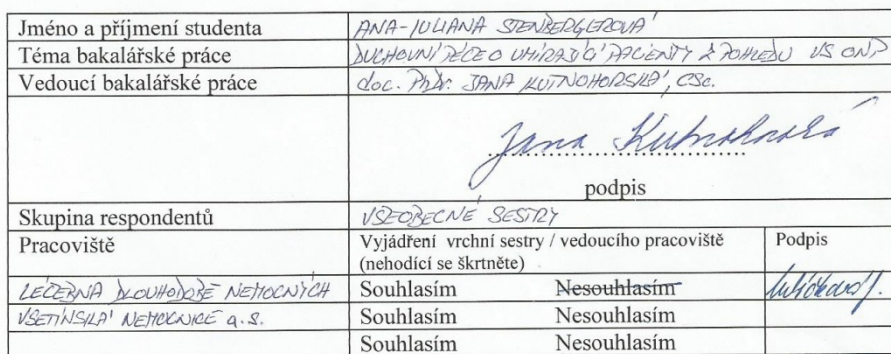 Jméno a příjmení studenta ANA-JULIANA STENBERGEROVÁ
Téma bakalářské práce DUCHOVNÍ PÉČE O UMÍRAJÍCÍ PACIENTY Z POHLEDU VS ONP
Vedoucí bakalářské práce doc. PhDr. JANA KUTNOHORSKÁ, CSc.
Jana Kutnohorská
podpis
Skupina respondentů VŠEOBECNÉ SESTRY
Pracoviště Vyjádření vrchní sestry / vedoucího pracoviště Podpis
(nehodící se škrtněte)
LÉČEBNA DLOUHODOBĚ NEMOCNÝCH Souhlasím Nesouhlasím
VSETÍNSKÁ NEMOCNICE a.s. Souhlasím Nesouhlasím
Souhlasím Nesouhlasím